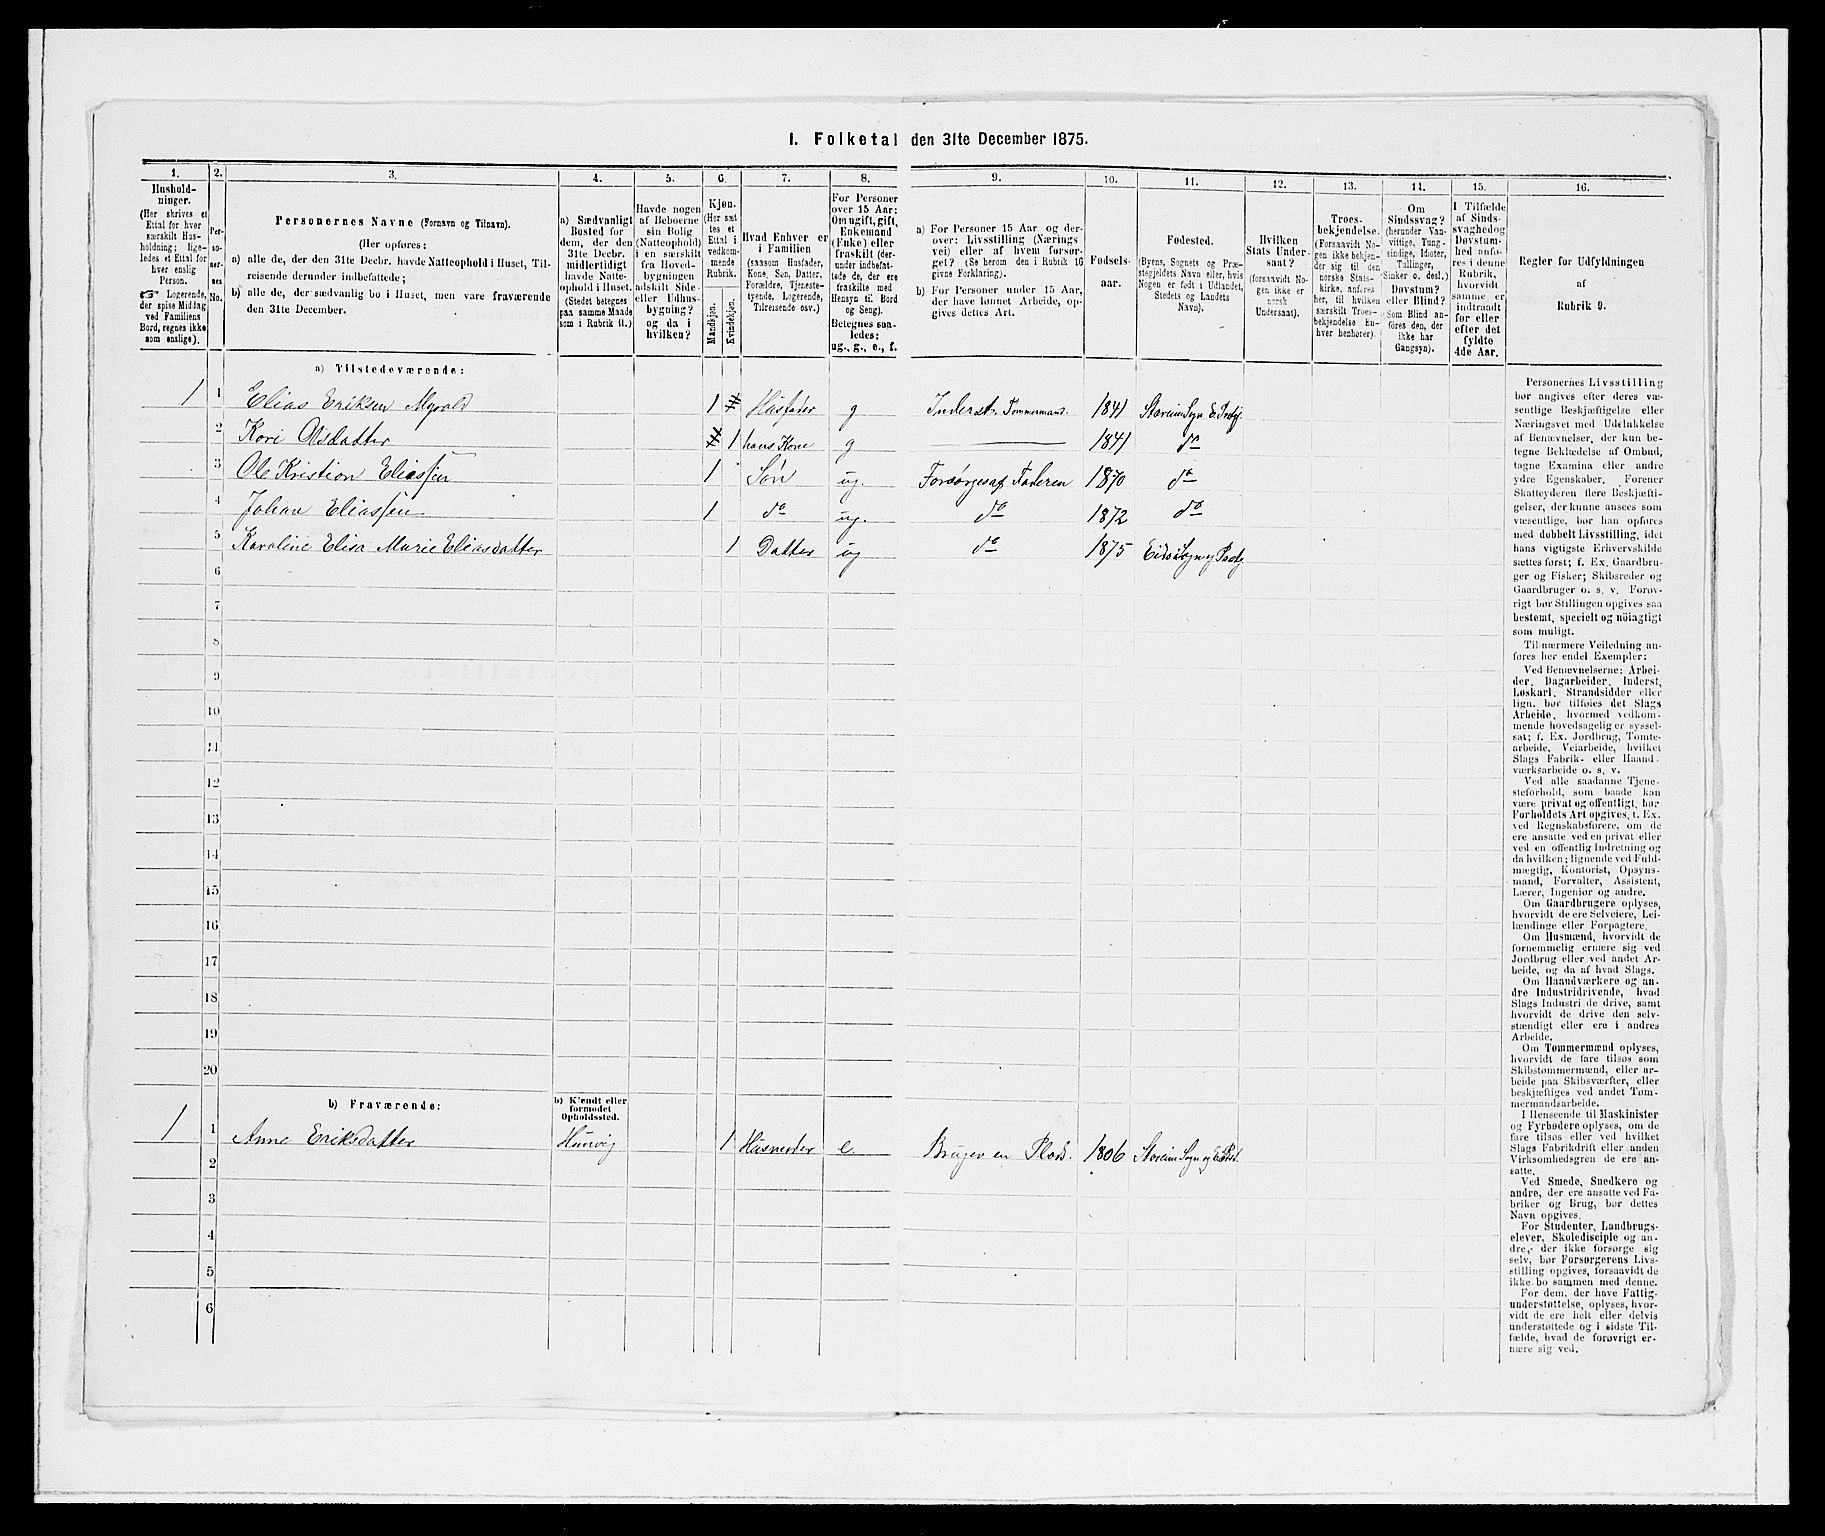 I. Folketal den 31te December 1875.
1. 2. 3. 4. 5. 6. 7. 8. 9. 10. 11. 12. 13. 14. 15. 16.
Hushold-
ninger.
(Her skrives et
Ettal for hver
særskilt Hus-
holdning; lige-
ledes et Ettal for
hver enslig
Person.
☞ Logerende,
der spise Middag
ved Familiens
Bord, regnes ikke
som enslige).
Per-
so-
ner-
nes
No.
Personernes Navne (Fornavn og Tilnavn).
(Her opføres:
a) alle de, der den 31te Decbr. havde Natteophold i Huset, Til-
reisende derunder indbefattede;
b) alle de, der sædvanlig bo i Huset, men vare fraværende
den 31te December.
a) Sædvanligt
Bosted for
dem, der den
31te Decbr.
midlertidigt
havde Natte-
ophold i Huset.
(Stedet betegnes
paa samme Maade
som i Rubrik 11.)
Havde nogen
af Beboerne
sin Bolig
(Natteophold)
i en særskilt
fra Hoved-
bygningen
adskilt Side-
eller Udhus-
bygning?
og da i
hvilken?
Kjøn.
(Her sæt-
tes et
Ettal i
vedkom-
mende
Rubrik.
Mandkjøn.
Kvindekjøn.
Hvad Enhver er
i Familien
(saasom Husfader,
Kone, Søn, Datter,
Forældre, Tjeneste-
tyende, Logerende,
Tilreisende osv.)
For Personer
over 15 Aar:
Om ugift, gift,
Enkemand
(Enke) eller
fraskilt (der-
under indbefat-
tede de, der ere
fraskilte med
Hensyn til Bord
og Seng).
Betegnes saa-
ledes:
ug., g., e., f.
a) For Personer 15 Aar og der-
over: Livsstilling (Nærings-
vei) eller af hvem forsør-
get? (Se herom den i Rubrik 16
givne Forklaring).
b) For Personer under 15 Aar,
der have lønnet Arbeide, op-
gives dettes Art.
Fødsels-
aar.
Fødested.
(Byens, Sognets og Præ-
stegjeldets Navn eller, hvis
Nogen er født i Udlandet,
Stedets og Landets
Navn).
Hvilken
Stats Under-
saat?
(forsaavidt No-
gen ikke er
norsk
Undersaat).
Troes-
bekjendelse.
(Forsaavidt No-
gen ikke bekjen-
der sig til den
norske Stats-
kirke, anføres
her, til hvilken
særskilt Troes-
bekjendelse En-
hver henhører).
Om
Sindssvag?
(herunder Van-
vittige, Tung-
sindige, Idioter,
Tullinger,
Sinker o. desl.)
Døvstum?
eller Blind?
(Som Blind an-
føres den, der
ikke har
Gangsyn).
I Tilfælde
af Sinds-
svaghed og
Døvstum-
hed anfø-
res i denne
Rubrik,
hvorvidt
samme er
indtraadt
før eller
efter det
fyldte
4de Aar.
Regler for Udfyldningen
af
Rubrik 9.
a) Tilstedeværende:
1 1 Elias Eriksen Myvold 1 Husfader g Inderst, Tommermand. 1841
2 Kari Olsdatter 1 hans Kone g 1841 do
3 Ole Kristian Eliassen 1 Søn ug. Forsørges af Faderen 1870 do
4 Johan Eliassen 1 do ug. do 1872 do
5 Karoline Elisa Marie Eliasdatter 1 Datter ug do 1875
6
7
8
9
10
11
12
13
14
15
16
17
18
19
20
b) Fraværende:
b) Kjendt eller
formodet
Opholdssted.
1 1 Anne Eriksdatter 1 Husmoder e. Bruger en Plads. 1806
2
3
4
5
6
Personernes Livsstilling
bør angives efter deres væ-
sentlige Beskjæftigelse eller
Næringsvei med Udelukkelse
af Benævnelser, der kun be-
tegne Beklædelse af Ombud,
tagne Examina eller andre
ydre Egenskaber. Forener
Skatteyderen flere Beskjæfti-
gelser, der kunne ansees som
væsentlige, bør han opføres
med dobbelt Livsstilling, idet
hans vigtigste Erhvervskilde
sættes først; f. Ex. Gaardbru-
ger og Fisker; Skibsreder og
Gaardbruger o. s. v. Forøv-
rigt bør Stillingen opgives saa
bestemt, specielt og nöiagtigt
som muligt.
Til nærmere Veiledning an-
føres her endel Exempler:
Ved Benævnelserne: Arbei-
der, Dagarbeider, Inderst,
Løskarl, Strandsidder eller
lign. bør tilføies det Slags
Arbeide, hvormed vedkom-
mende hovedsagelig er syssel-
sat; f. Ex. Jordbrug, Tomte-
arbeide, Veiarbeide, hvilket
Slags Fabrik- eller Haand-
værksarbeide o. s. v.
Ved alle saadanne Tjene-
steforhold, som baade kan
være privat og offentligt, bør
Forholdets Art opgives, t. Ex.
ved Regnskabsførere, om de
ere ansatte ved en privat eller
ved en offentlig Indretning og
da hvilken; lignende ved Fuld-
mægtig, Kontorist, Opsyns-
mand, Forvalter, Assistent,
Lærer, Ingeniør og andre.
Om Gaardbrugere oplyses,
hvorvidt de ere Selveiere, Lei-
lændinge eller Forpagtere.
Om Husmænd, hvorvidt de
fornemmelig ernære sig ved
Jordbrug eller ved andet Ar-
beide, og da af hvad Slags.
Om Haandværkere og an-
dre Industridrivende, hvad
Slags Industri de drive, samt
hvorvidt de drive den selv-
stændigt eller ere i andres
Arbeide.
Om Tømmermænd oplyses,
hvorvidt de fare tilsøs som
Skibstømmermænd, eller ar-
beide paa Skibsværfter, eller
beskjæftiges ved andet Tøm-
mermandsarbeide.
I Henseende til Maskinister
og Fyrbødere oplyses, om de
fare tilsøs eller ved hvilket
Slags Fabrikdrift eller anden
Virksomhedsgren de ere an-
satte.
Ved Smede, Snedkere og
andre, der ere ansatte ved Fa-
briker og Brug, bør dettes
Navn opgives.
For Studenter, Landbrugs-
elever, Skoledisciple og an-
dre, der ikke forsørge sig
selv, bør Forsørgerens Livs-
stilling opgives, forsaavidt de
ikke bo sammen med denne.
For dem, der have Fattig-
understøttelse, oplyses, hvor-
vidt de ere helt eller delvis
understøttede og i sidste Til-
fælde, hvad de forøvrigt er-
nære sig ved.